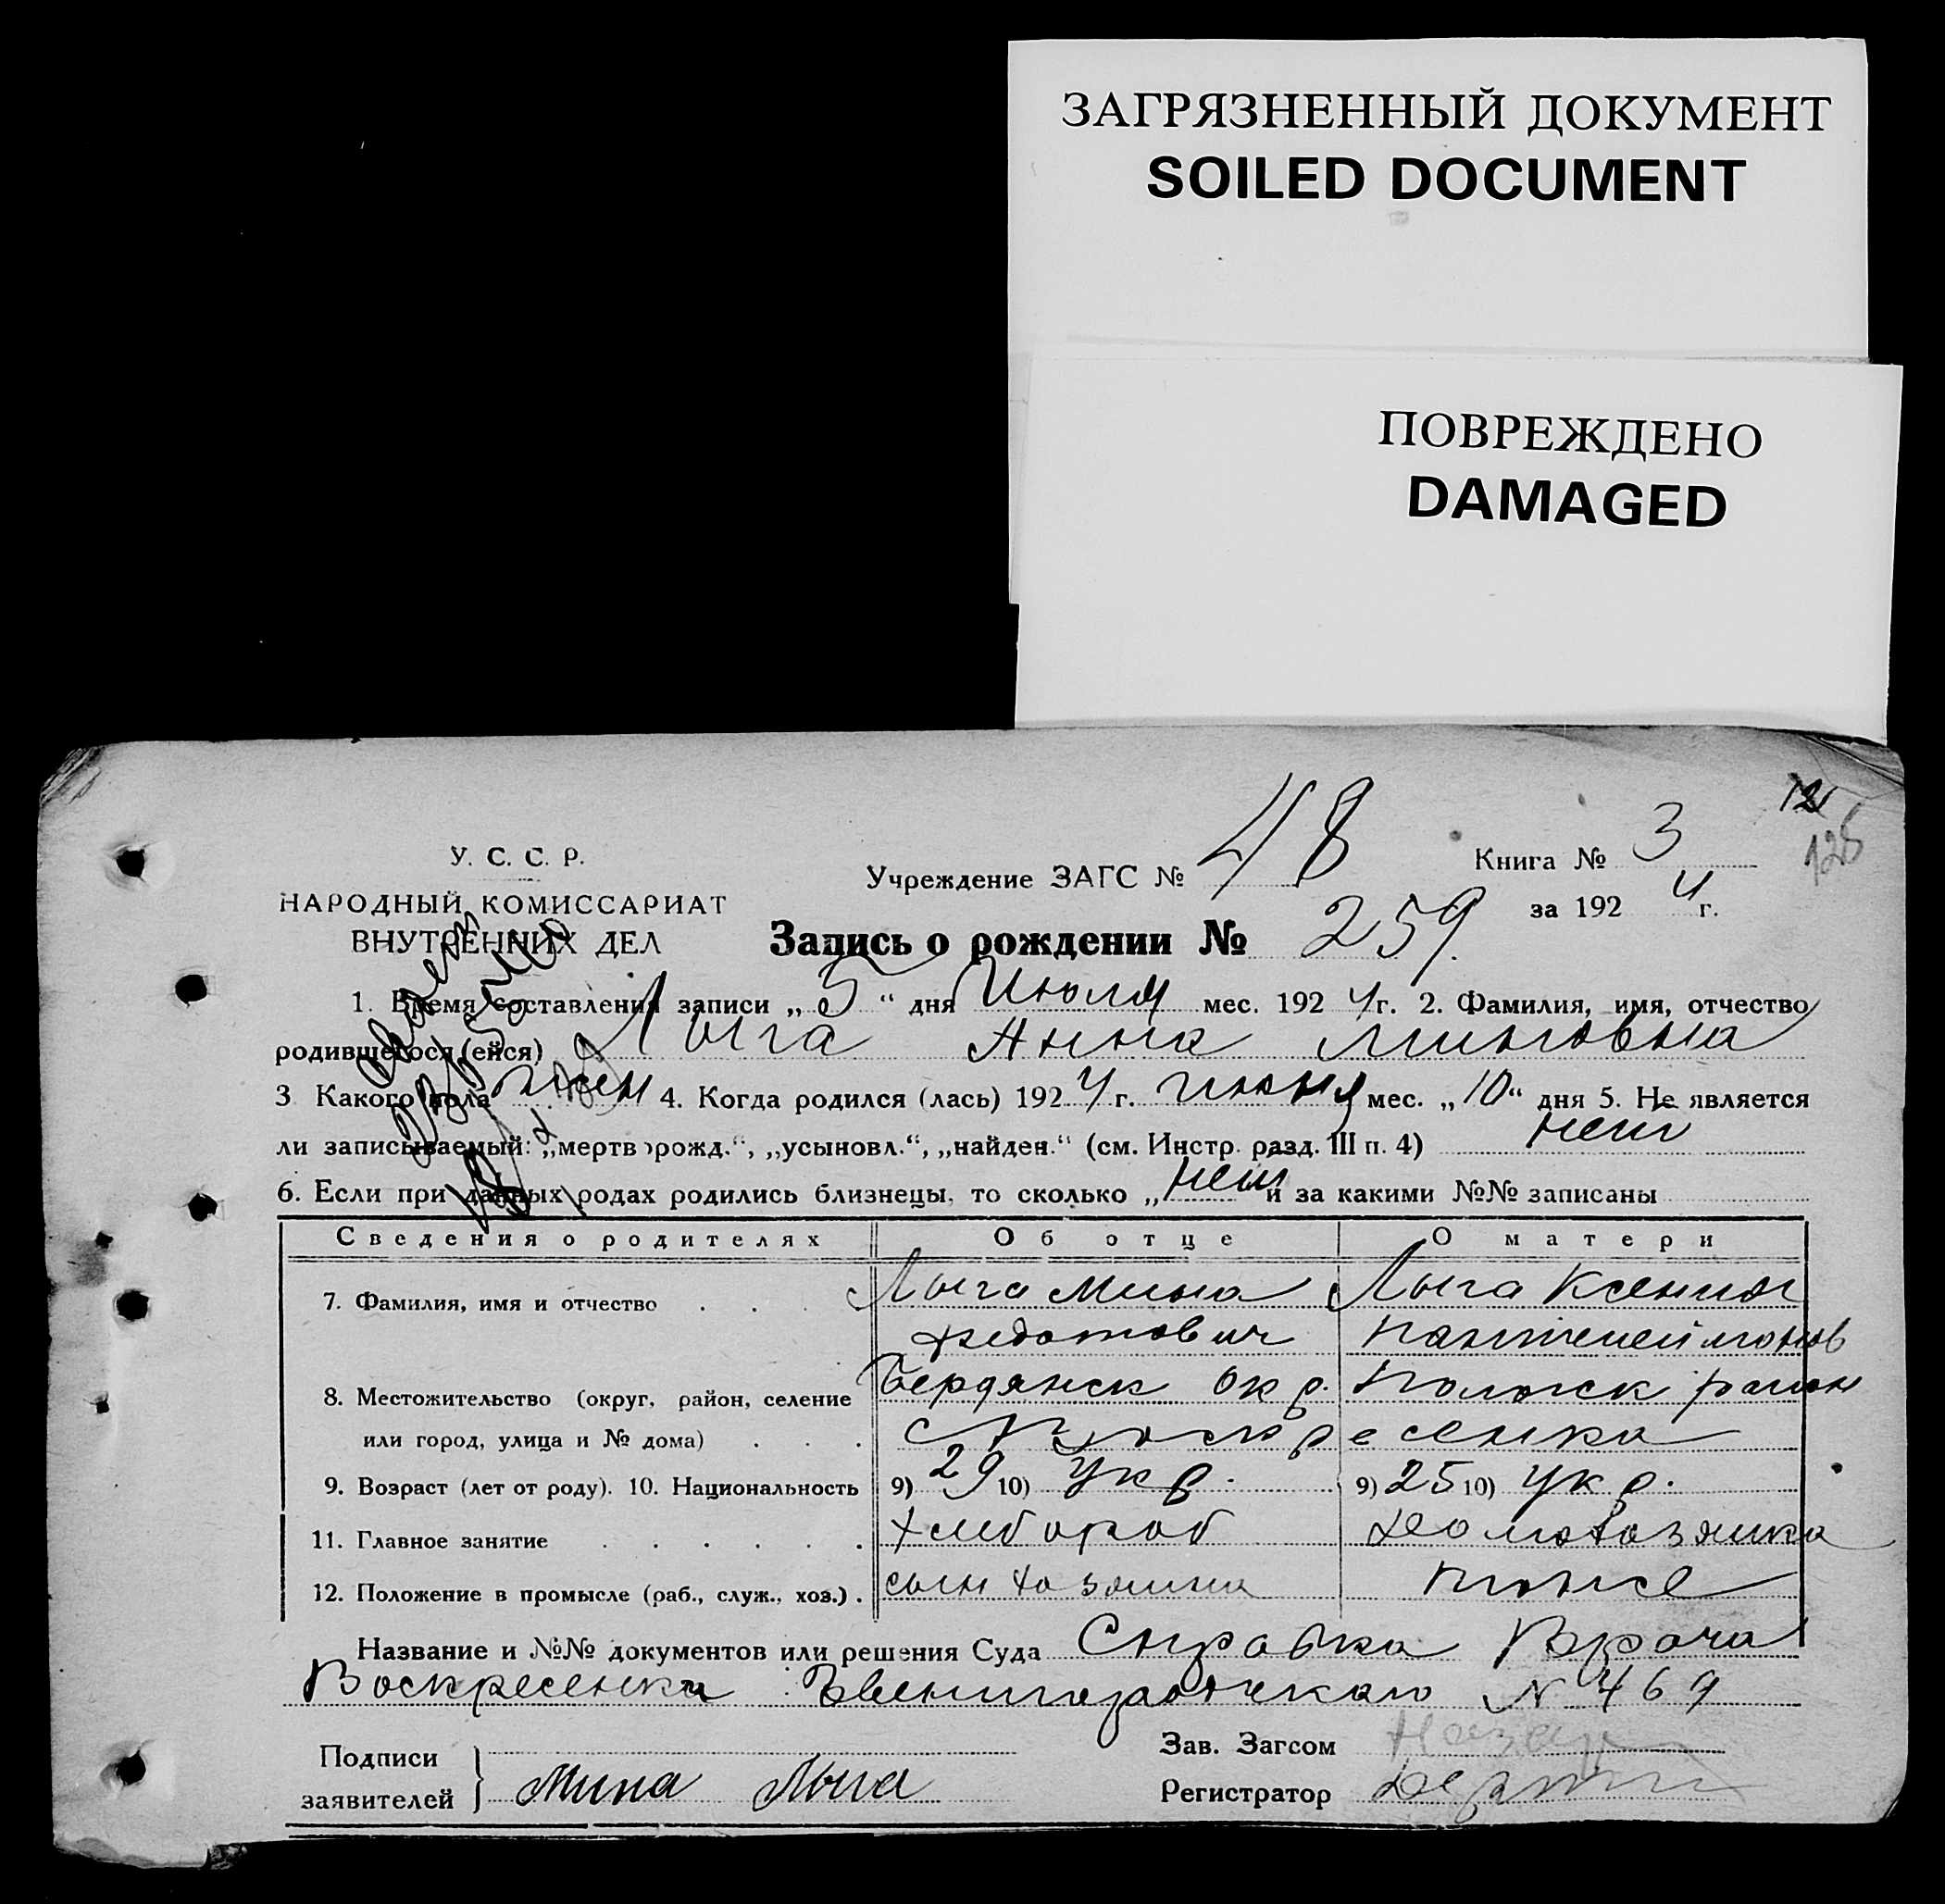 ЗАГРЯЗНЕННЫЙ ДОКУМЕНТ
SOILED DOCUMENT
ПОВРЕЖДЕНО
DAMAGED
У. С. С. Р.
НАРОДНЫЙ КОМИССАРИАТ
ВНУТРЕННИХ ДЕЛ
Учреждение ЗАГС № 48
Книга № 3
за 1924 г.
Запись о рождении № 259
1. Время составления записи „5“ дня Июля мес. 1924 г. 2. Фамилия, имя, отчество
родившегося (ейся) Лыга Анна Миновна
3 Какого пола жен 4. Когда родился (лась) 1924 г. июня мес. „10“ дня 5. Не является
ли записываемый: „мертворожд.“, „усыновл.“, „найден.“ (см. Инстр. разд. III п. 4) нет
6. Если при данных родах родились близнецы, то сколько „нет и за какими №№ записаны
Сведения о родителях Об отце О матери
7. Фамилия, имя и отчество Лыга Мина Лыга Ксения
Федотович Пантелеймонов
8. Местожительство (округ, район, селение Бердянск окр. Пологск район
или город, улица и № дома) с Воскресенка
9. Возраст (лет от роду). 10. Национальность 9) 29 10) Укр. 9) 25 10) Укр.
11. Главное занятие хлебороб домохозяйка
12. Положение в промысле (раб., служ., хоз.) сын хозяина тоже
Название и №№ документов или решения Суда Справка Врача
Воскресенки Звенигородскаго № 469
Подписи
заявителей Мина Лыга
Зав. Загсом
Регистратор